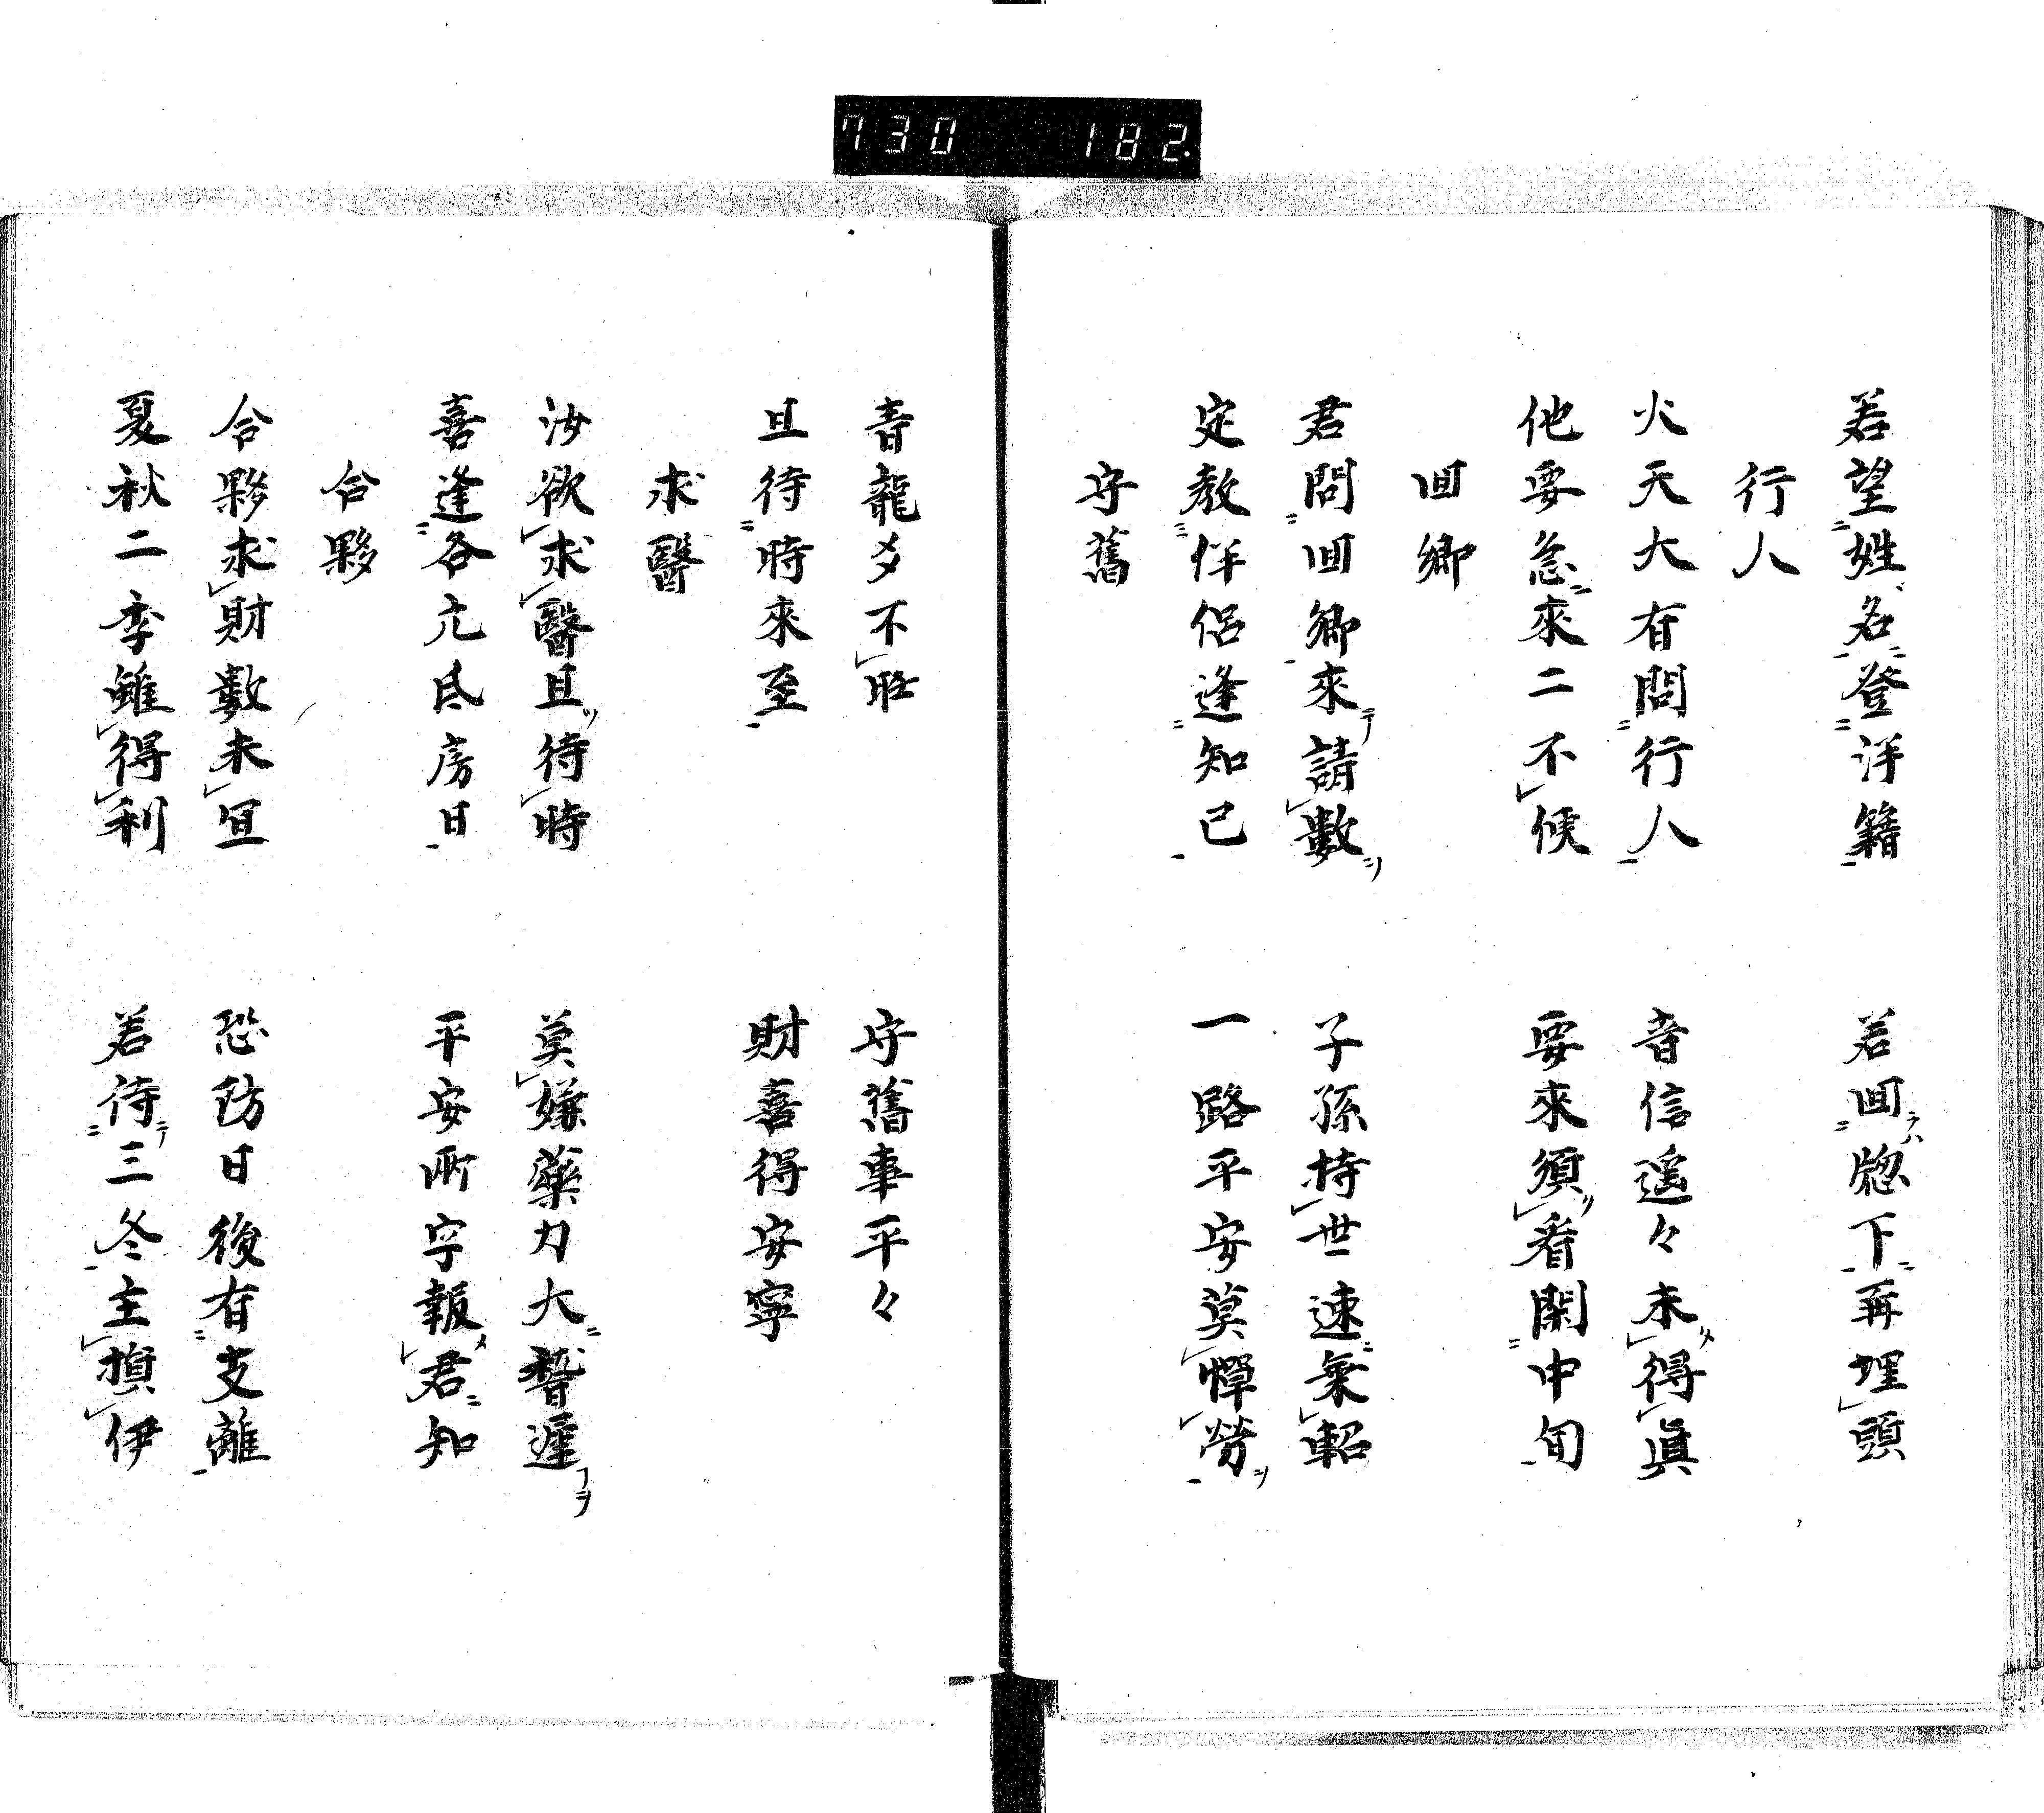 730 182
若望姓名登洋籍 若回牎下再埋頭
行人
火天大有問行人 音信遥々未得眞
他要急來二不候 要來須看閑中旬
回鄉
君問回鄉來請數 子孫持世速乗軺
定教伴侶逢知己 一路平安莫憚勞
守舊
青龍多不旺 守舊車平々
且待時來至 財喜得安寧
求醫
汝欲求醫且待時 莫嫌藥力大誓遲
喜逢各亢氐房日 平安兩字報君知
合夥
合夥求財數未宜 恐防日後有支離
夏秋二季雖得利 若待三冬主損伊